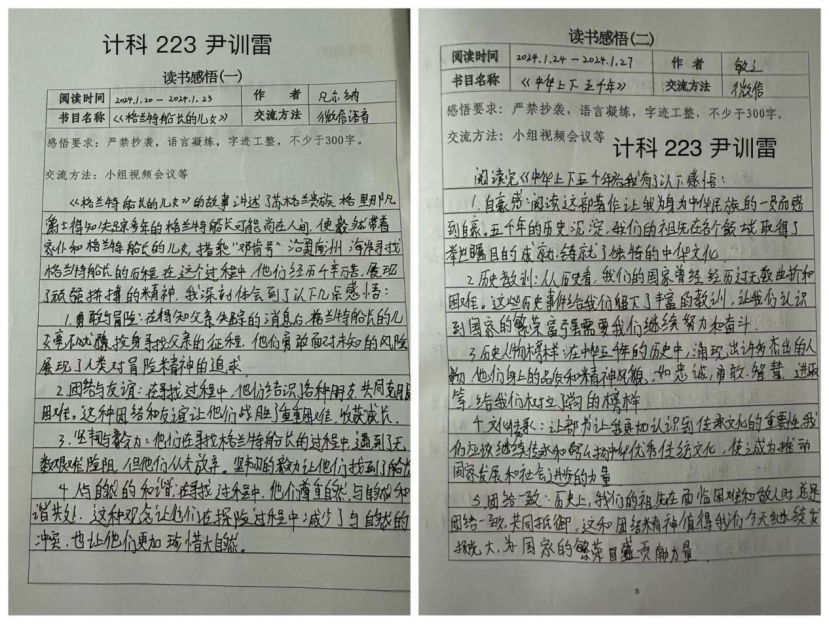 计科 223 尹训雷
读书感悟(一)
阅读时间 2024.1.20 — 2024.1.23 作者 凡尔纳
书目名称 《格兰特船长的儿女》 交流方法 微信语音
感悟要求：严禁抄袭，语言凝练，字迹工整，不少于300字。
交流方法：小组视频会议等
《格兰特船长的儿女》的故事讲述了苏格兰贵族格里那凡
爵士得知失踪多年的格兰特船长可能尚在人间，便毅然带着
家仆和格兰特船长的儿女，搭乘"邓肯号"沿着南洲海岸寻找
格兰特船长的历程。在这个过程中，他们经历千辛万苦，展现
了顽强拼搏的精神，我深刻体会到了以下几点感悟：
1.勇敢与冒险：在得知父亲失踪的消息后，格兰特船长的儿
女毫不犹豫投身寻找父亲的征程。他们勇敢面对未知的风险
展现了人类对冒险精神的追求
2.团结与友谊：在寻找过程中，他们结识各种朋友，共同克服
困难。这种团结和友谊让他们战胜了重重困难，收获成长。
3.坚韧与毅力：他们在寻找格兰特船长的过程中，遇到了无
数艰难险阻，但他们从未放弃。坚韧的毅力让他们找到了船长
4.与自然的和谐：在寻找过程中，他们尊重自然，与自然和
谐共处，这种观念让他们在探险过程中减少了与自然的
冲突，也让他们更加珍惜大自然。
读书感悟(二)
阅读时间 2024.1.24 — 2024.1.27 作者
书目名称 《中华上下五千年》 交流方法 微信
感悟要求：严禁抄袭，语言凝练，字迹工整，不少于300字。
交流方法：小组视频会议等
计科 223 尹训雷
阅读完《中华上下五千年》给我有了以下感悟：
1.自豪感：阅读这部著作让我身为中华民族的一员而感
到自豪。五千年的历史沉淀，我们的祖先在各个领域取得了
举世瞩目的成就，铸就了独特的中华文化
2.历史教训：从历史看，我们的国家曾经经历过无数曲折和
困难。这些历史事件给我们留下了丰富的教训，让我们认识
到国家的繁荣富强需要我们继续努力和奋斗.
3.历史人物榜样：在中华五千年的历史中，涌现出许多杰出的人
物，他们身上的品质和精神风貌，如忠诚，勇敢，智慧，进取
等，给我们树立了学习的榜样
4.文化传承：让部书让我更加认识到传承文化的重要性，我
们应该继续传承和弘扬中华优秀传统文化，使之成为推动
国家发展和社会进步的力量
5.团结一致：历史上，我们的祖先在面临困难和敌人时总是
团结一致，共同抵御，这种团结精神值得我们今天继续发
扬光大，为国家的繁荣昌盛贡献力量.
8